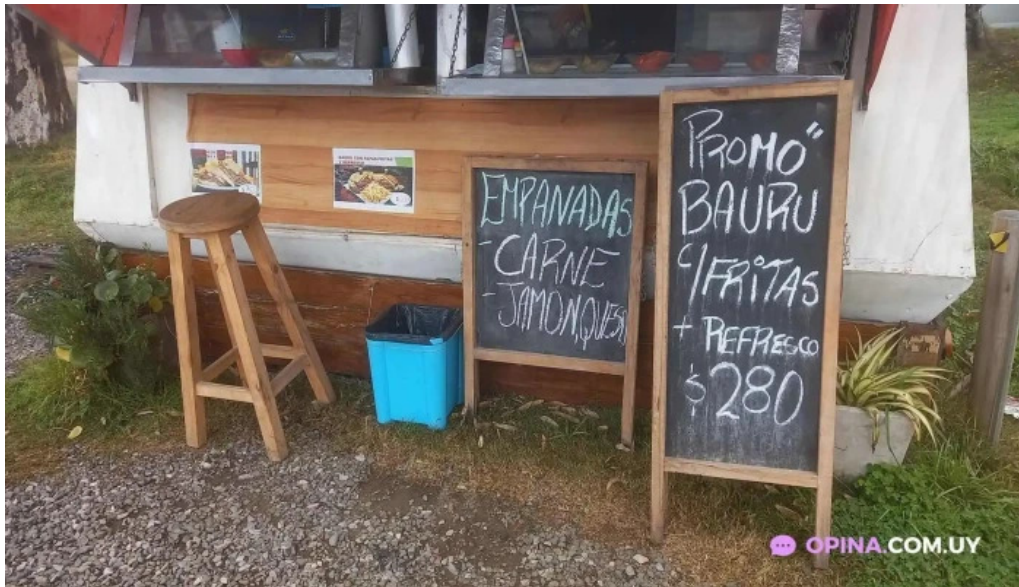 EMPANADAS
- CARNE
- JAMON,QUESO
PROMO"
BAURU
C/FRITAS
+ REFRESCO
$280
OPINA.COM.UY